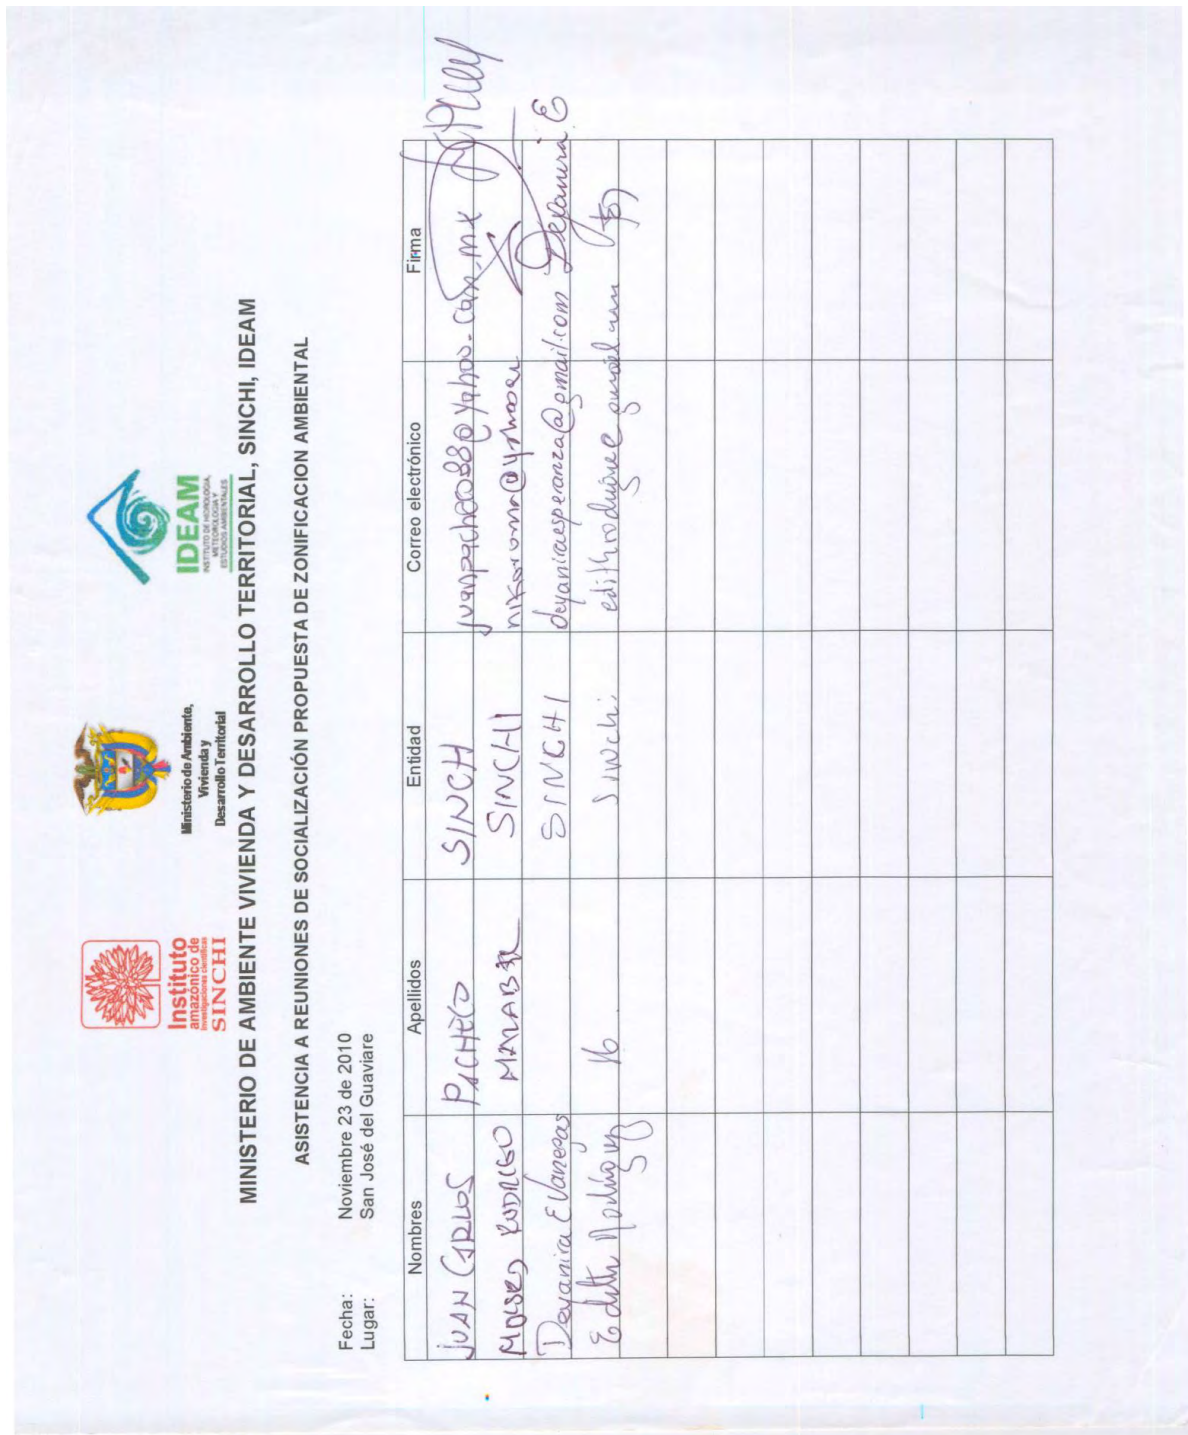 Instituto
amazónico de
investigaciones científicas
SINCHI
Ministerio de Ambiente,
Vivienda y
Desarrollo Territorial
IDEAM
INSTITUTO DE HIDROLOGÍA,
METEOROLOGÍA Y
ESTUDIOS AMBIENTALES
MINISTERIO DE AMBIENTE VIVIENDA Y DESARROLLO TERRITORIAL, SINCHI, IDEAM
ASISTENCIA A REUNIONES DE SOCIALIZACIÓN PROPUESTA DE ZONIFICACION AMBIENTAL
Fecha: Noviembre 23 de 2010
Lugar: San José del Guaviare
Nombres Apellidos Entidad Correo electrónico Firma
JUAN CARLOS PACHECO SINCH
RODRIGO SINCHI
Deyanira E Vanegas SINCHI deyaniraesperanza@gmail.com Deyanira E
Edith Sinchi